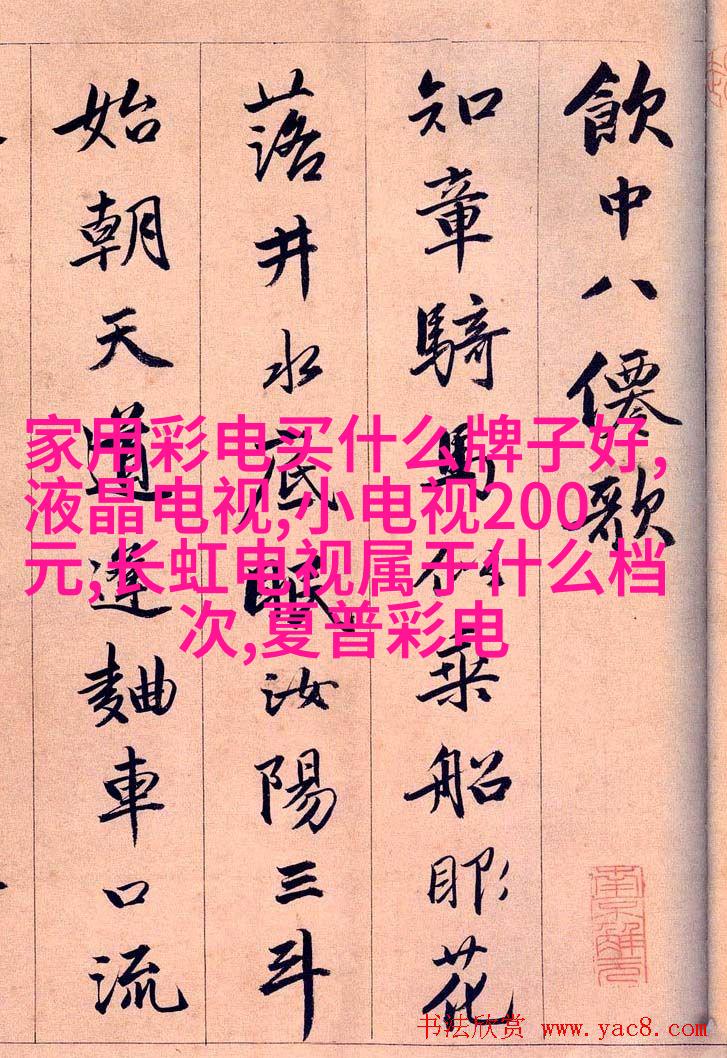 飲中八僊歌
知章騎馬似乘船眼花
落井水底眠汝陽三斗
始朝天道逢麯車口流
家用彩电买什么牌子好,
液晶电视,小电视200
元,长虹电视属于什么档
次,夏普彩电
南京解元
书法欣赏 www.yac8.com